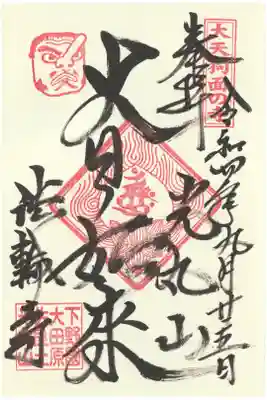 大天狗面の寺
奉拝
令和四年九月廿五日
光丸山
大日如来
法輪寺
下野國
大田原